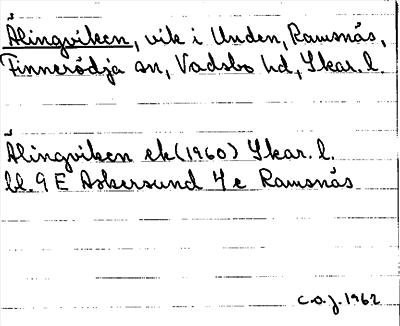 Ålingviken, vik i Unden, Ramsnäs,
Finnerödja sn, Vadsbo hd, Skar. l.
Ålingviken ek (1960) Skar. l.
bl. 9 E Askersund 4 e Ramsnäs
C.O.J. 1962